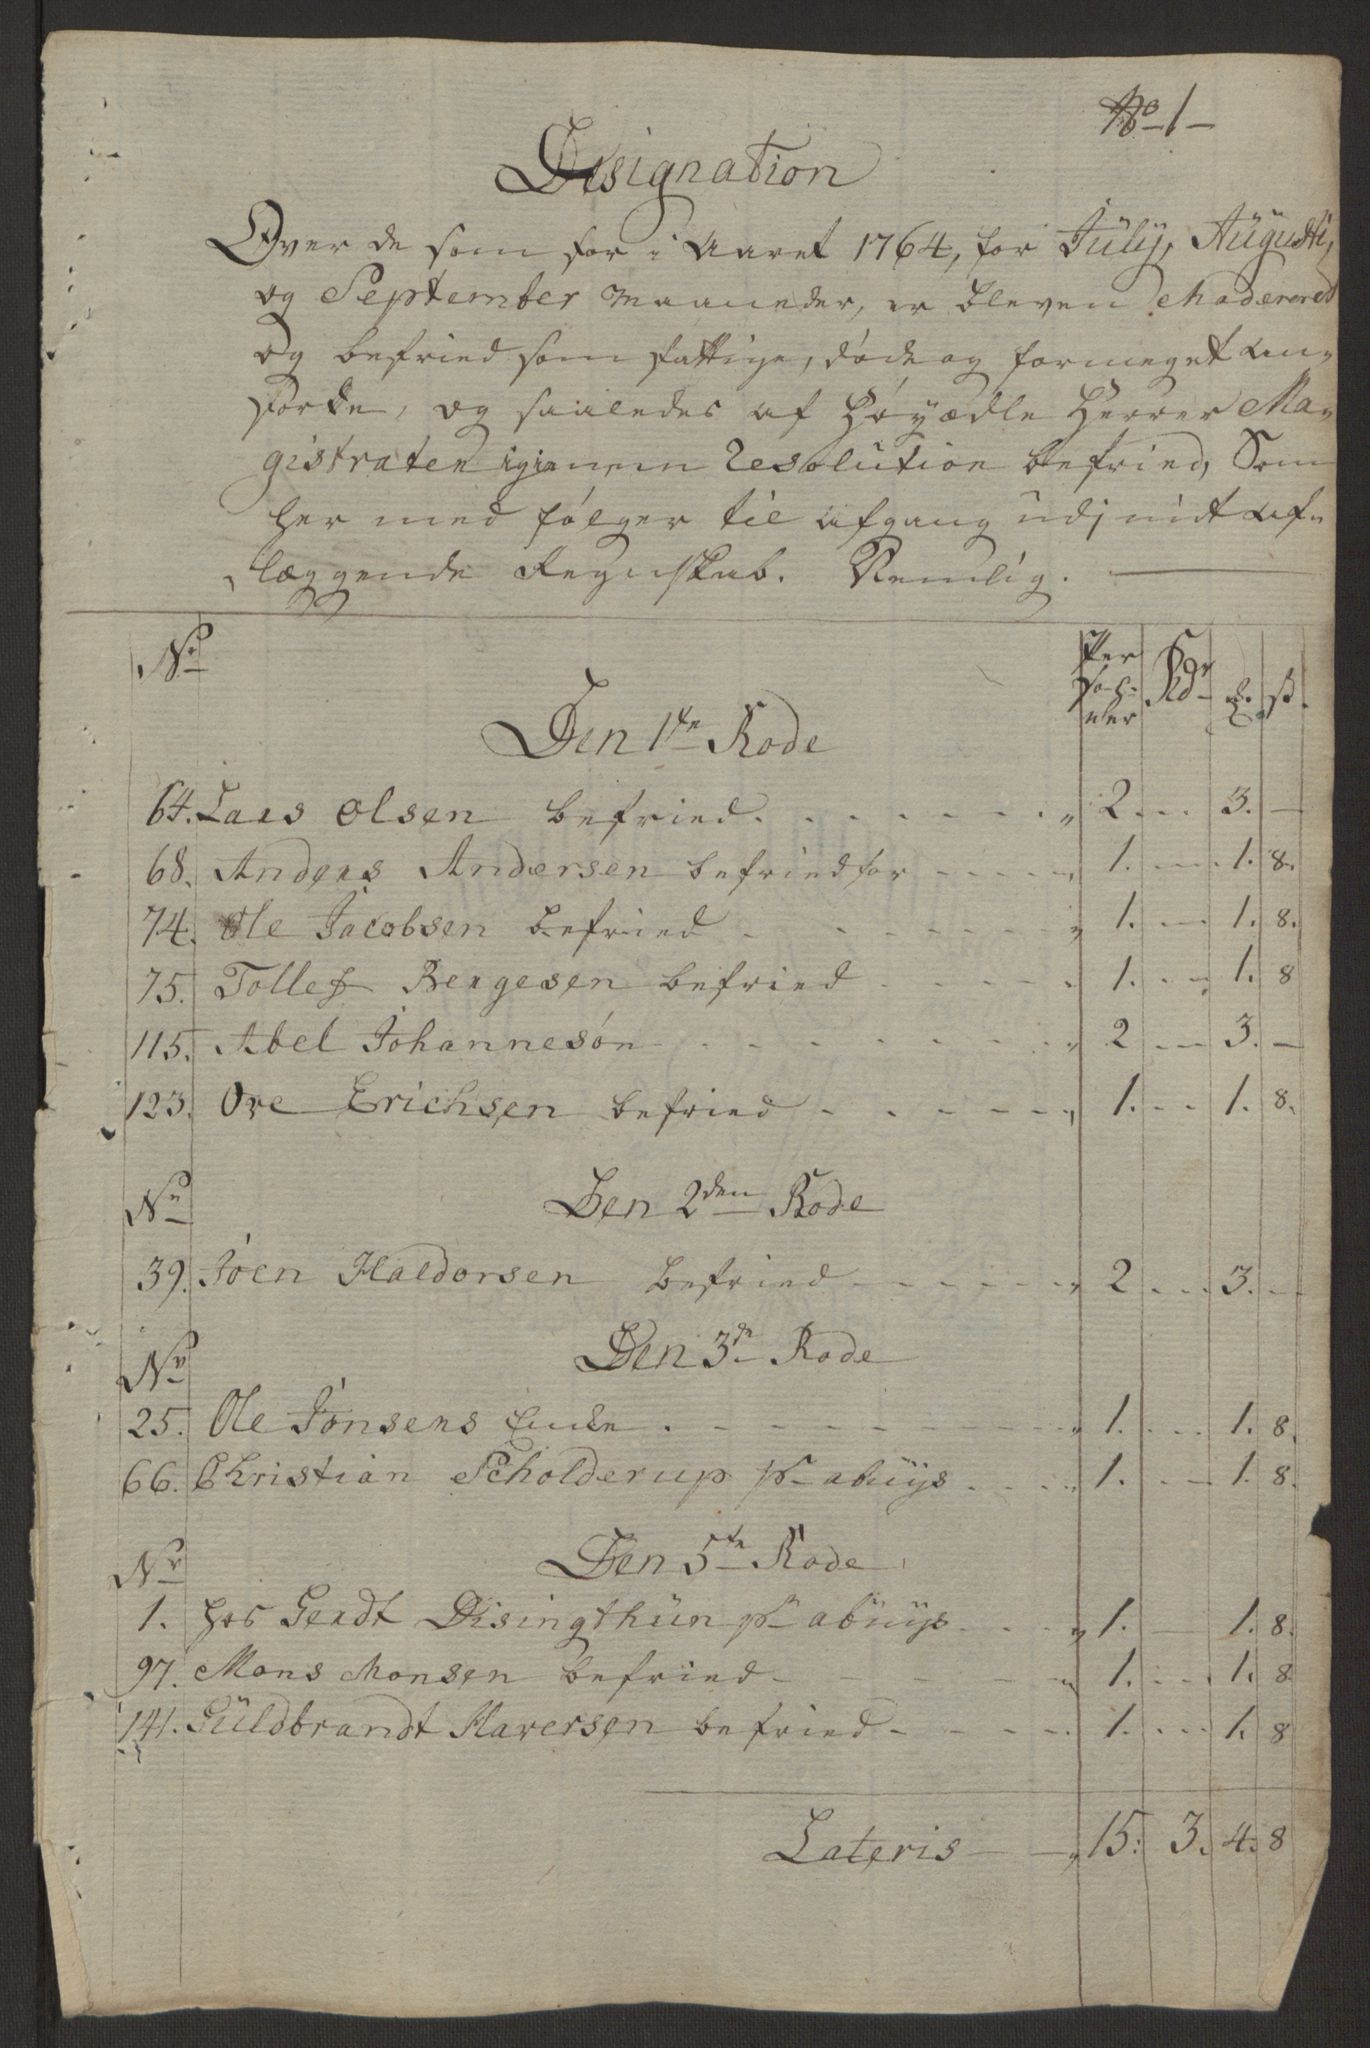 No 1
Designation
Over de som for i Aaret 1764, for Julÿ, Augusti,
og September Maaneder, er bleven Modererede
og befried som fattige, døde og formeget an-
førte, og saaledes af Høyædle Herrer Ma-
gistraten igienem Resolution befried, Som
her med følger til afgang udj mit af-
læggende Regnskab. Nemlig.
No
Per
soh-
ner
Rdr
sk.
Den 1te Rode
64. Lars Olsen befried 2 3. —
68. Anders Andersen befried for 1. 1. 8.
74. Ole Jacobsen befried 1. 1. 8.
75. Tollef Bergesen befried 1. 1. 8
115. Abel Johannesøn 2 3. —
123. Ove Erichsen befried 1. 1. 8.
Nr Den 2den Rode
39. Joen Haldorsen befried 2 3. —
Nr Den 3de Rode
25. Ole Jonsens Encke 1. 1. 8.
66. Christian Scholderup pr abuÿs 1. 1. 8.
Nr Den 5te Rode
1. hos Gerdt Disingthun pr abuÿs 1. 1. 8.
97. Mons Monsen befried 1. 1. 8
141. Guldbrandt Haversen befried 1. 1. 8
Lateris 15. 3. 4. 8